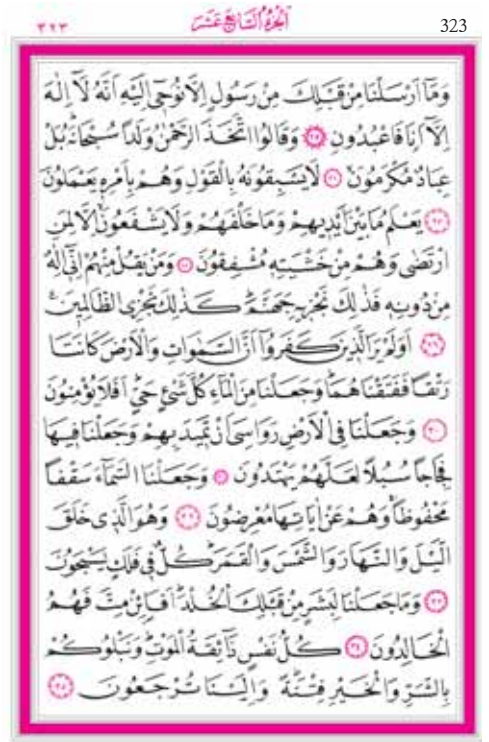 ٣٢٣ اَلْجُزْءُ السَّابِعَ عَشَرَ 323
وَمَٓا اَرْسَلْنَا مِنْ قَبْلِكَ مِنْ رَسُولٍ اِلَّا نُوح۪ٓي اِلَيْهِ اَنَّهُ لَٓا اِلٰهَ
اِلَّٓا اَنَا۬ فَاعْبُدُونِ ﴿٢٥﴾ وَقَالُوا اتَّخَذَ الرَّحْمٰنُ وَلَداً سُبْحَانَهُۜ بَلْ
عِبَادٌ مُكْرَمُونَۙ ﴿٢٦﴾ لَا يَسْبِقُونَهُ بِالْقَوْلِ وَهُمْ بِاَمْرِه۪ يَعْمَلُونَ
﴿٢٧﴾ يَعْلَمُ مَا بَيْنَ اَيْد۪يهِمْ وَمَا خَلْفَهُمْ وَلَا يَشْفَعُونَۙ اِلَّا لِمَنِ
ارْتَضٰى وَهُمْ مِنْ خَشْيَتِه۪ مُشْفِقُونَ ﴿٢٨﴾ وَمَنْ يَقُلْ مِنْهُمْ اِنّ۪ٓي اِلٰهٌ
مِنْ دُونِه۪ فَذٰلِكَ نَجْز۪يهِ جَهَنَّمَۜ كَذٰلِكَ نَجْزِي الظَّالِم۪ينَ۟
﴿٢٩﴾ اَوَلَمْ يَرَ الَّذ۪ينَ كَفَرُٓوا اَنَّ السَّمٰوَاتِ وَالْاَرْضَ كَانَتَا
رَتْقاً فَفَتَقْنَاهُمَاۜ وَجَعَلْنَا مِنَ الْمَٓاءِ كُلَّ شَيْءٍ حَيٍّۜ اَفَلَا يُؤْمِنُونَ
﴿٣٠﴾ وَجَعَلْنَا فِي الْاَرْضِ رَوَاسِيَ اَنْ تَم۪يدَ بِهِمْ وَجَعَلْنَا ف۪يهَا
فِجَاجاً سُبُلاً لَعَلَّهُمْ يَهْتَدُونَ ﴿٣١﴾ وَجَعَلْنَا السَّمَٓاءَ سَقْفاً
مَحْفُوظاًۚ وَهُمْ عَنْ اٰيَاتِهَا مُعْرِضُونَ ﴿٣٢﴾ وَهُوَ الَّذ۪ي خَلَقَ
الَّيْلَ وَالنَّهَارَ وَالشَّمْسَ وَالْقَمَرَۜ كُلٌّ ف۪ي فَلَكٍ يَسْبَحُونَ
﴿٣٣﴾ وَمَا جَعَلْنَا لِبَشَرٍ مِنْ قَبْلِكَ الْخُلْدَۜ اَفَا۬ئِنْ مِتَّ فَهُمُ
الْخَالِدُونَ ﴿٣٤﴾ كُلُّ نَفْسٍ ذَٓائِقَةُ الْمَوْتِۜ وَنَبْلُوكُمْ
بِالشَّرِّ وَالْخَيْرِ فِتْنَةًۜ وَاِلَيْنَا تُرْجَعُونَ ﴿٣٥﴾